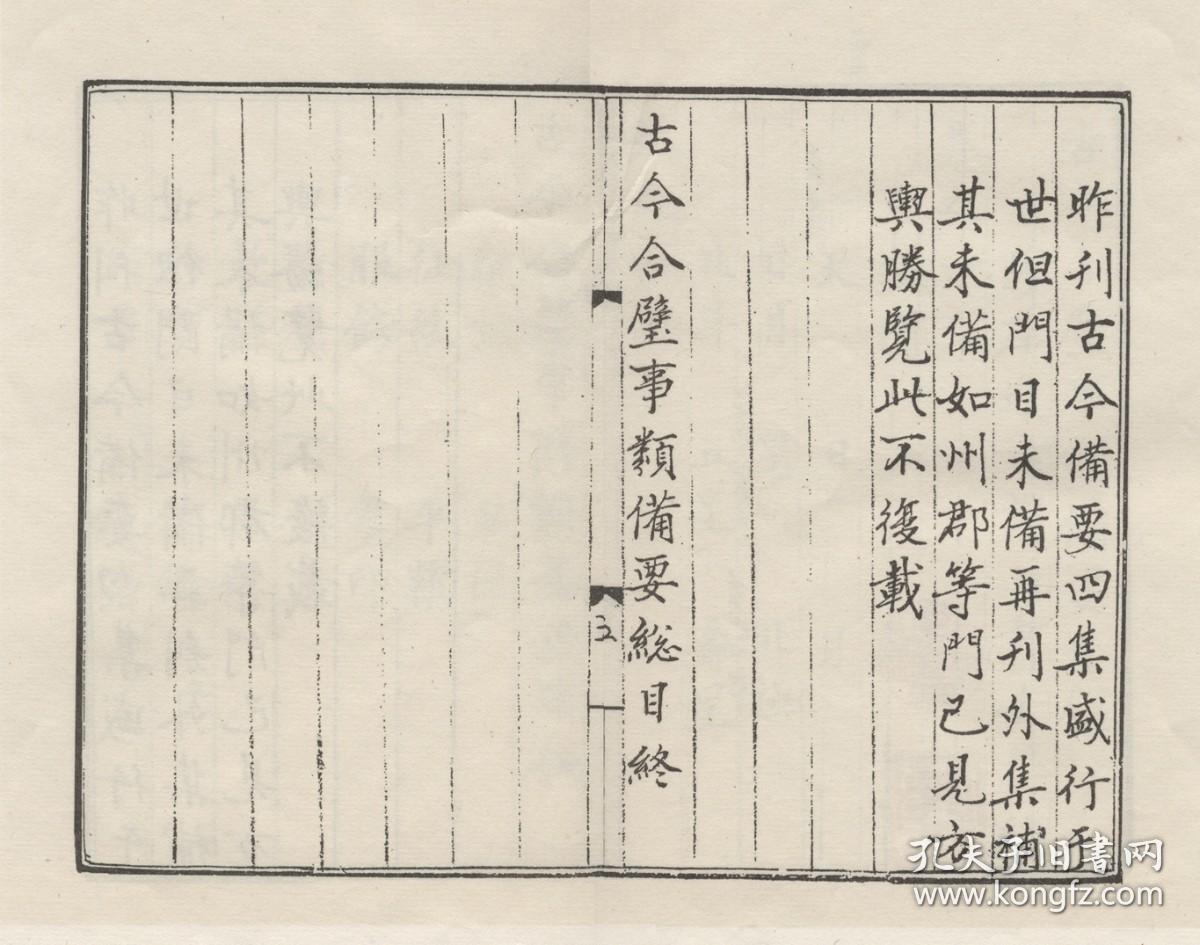 昨刊古今備要四集盛行于
世但門目未備再刊外集補
其未備如州郡等門已見方
輿勝覽此不復載
古今合璧事類備要総目終
五
孔夫子旧书网
www.kongfz.com